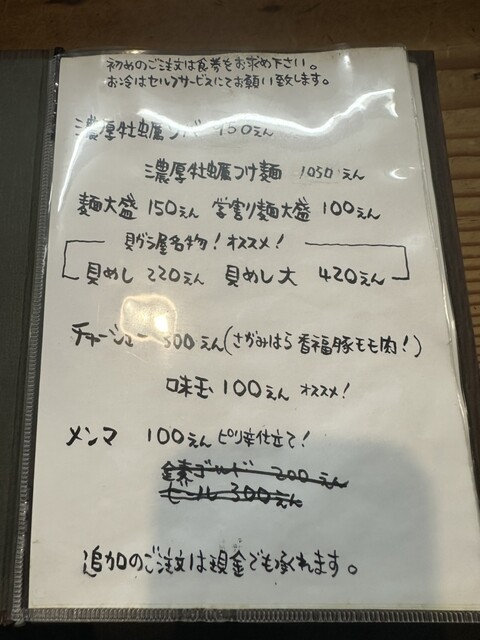 初めのご注文は食券をお求め下さい。
お冷はセルフサービスにてお願い致します。
濃厚牡蠣ソバ 950えん
濃厚牡蠣つけ麺 1050えん
麺大盛 150えん 学割り麺大盛 100えん
貝がら屋名物!オススメ!
貝めし 220えん 貝めし大 420えん
チャーシュー 300えん(さがみはら香福豚モモ肉!)
味玉 100えん オススメ!
メンマ 100えん ピリ辛仕立て!
200えん
ビール 300えん
追加のご注文は現金でも承れます。